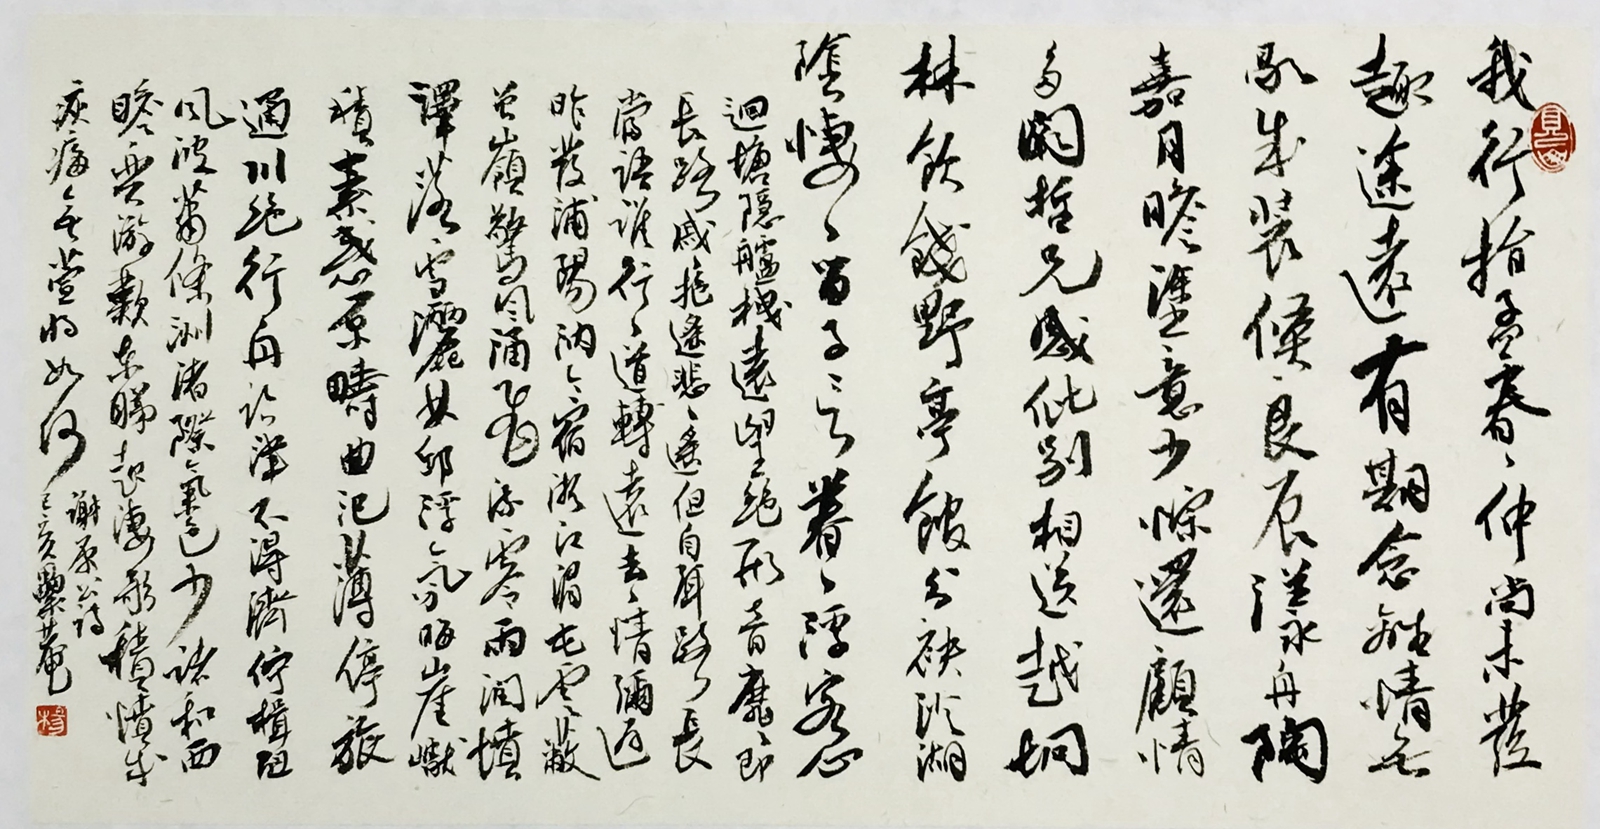 我行指孟春〻仲尚未發
趣途遠有期念離情無
歇成裝候良辰漾舟陶
嘉月瞻塗意少悰還顧情
多闕哲兄感仳别相送越坰
林飲餞野亭館分袂澄湖
陰悽〻留子言眷〻浮客心
迴塘隱艫栧遠望絶形音靡〻即
長路戚抱遥悲〻遥但自弭路長
當語誰行〻道轉遠去〻情彌遲
昨發浦陽汭今宿浙江湄屯雲蔽
曾嶺驚風涌飛流零雨潤墳
澤落雪灑林邱浮氛晦崖巘
積素惑原疇曲汜薄停旅
通川絶行舟臨津不得濟佇楫阻
風波蕭條洲渚際氣色少諧和西
瞻興游歎東睇起悽歌積憤成
疢痗無萱將如何
謝 詩
己亥